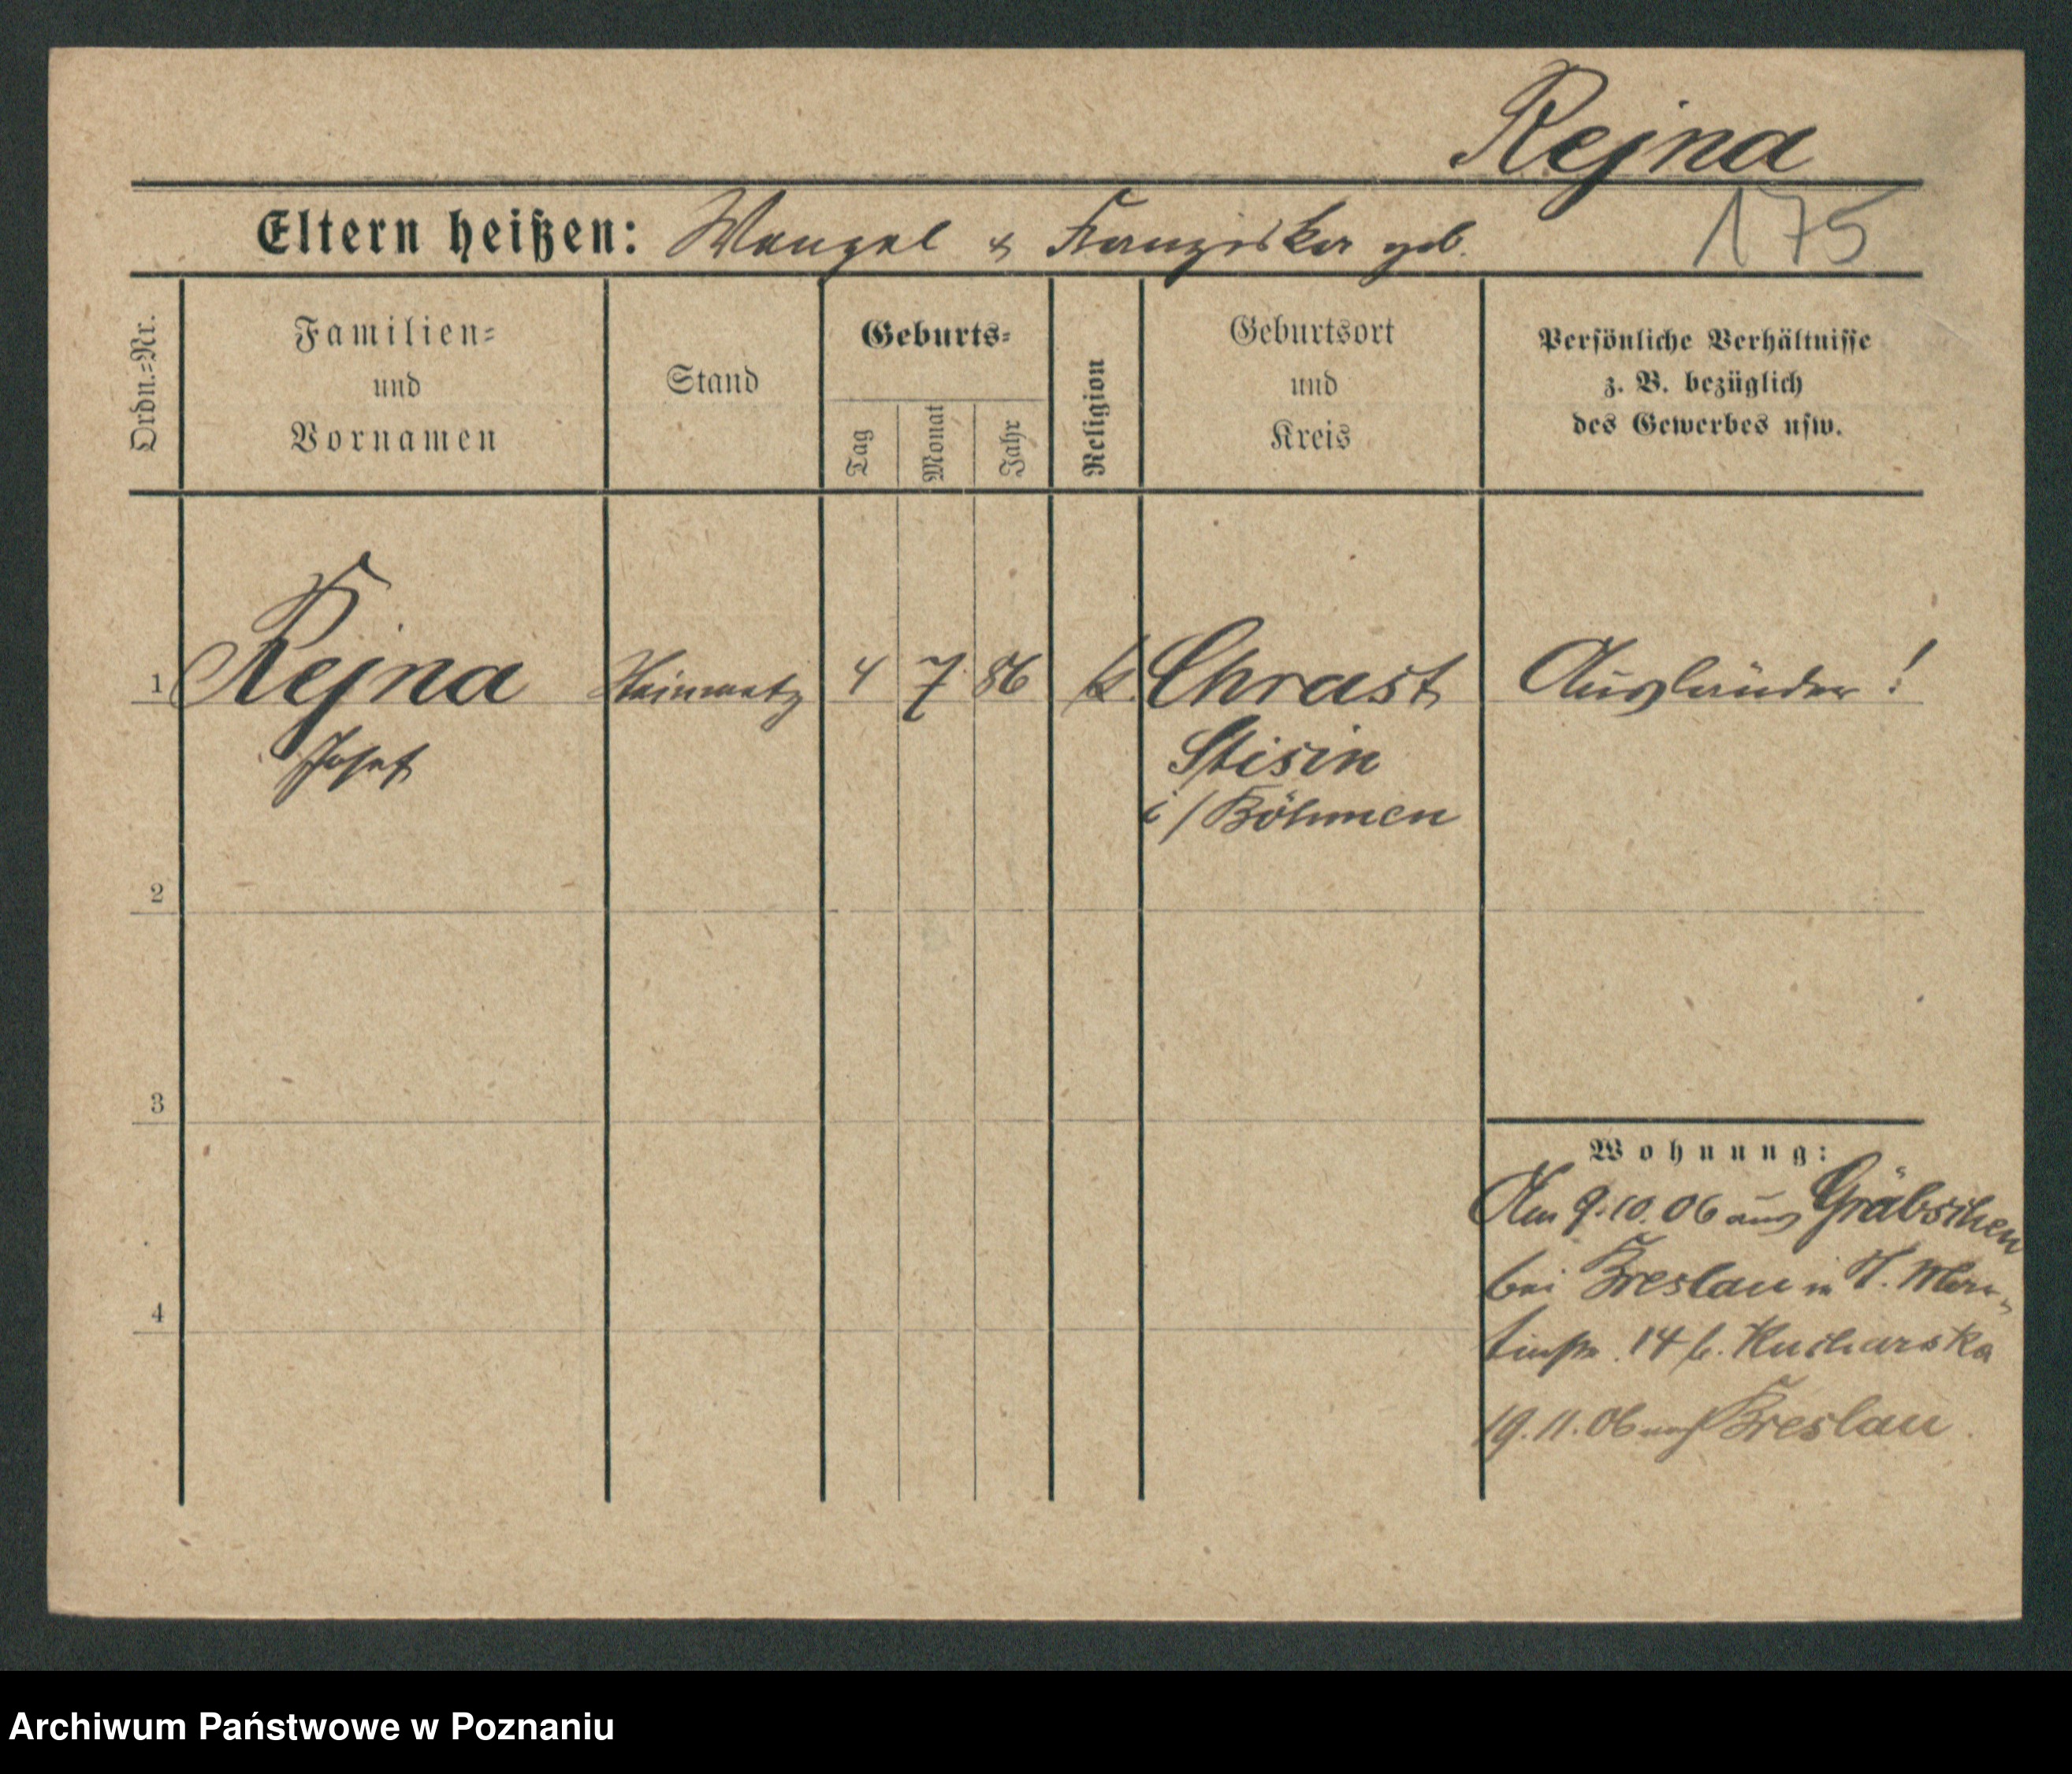 Rejna
Eltern heißen: Wenzel & Franziska geb. 175
Ordn.=Nr.
Familien=
und
Vornamen
Stand
Geburts=
Tag
Monat
Jahr
Religion
Geburtsort
und
Kreis
Persönliche Verhältnisse
z. B. bezüglich
des Gewerbes usw.
1 Rejna Steinmetz 4 7. 86 k. Chrast Ausländer!
Josef Stisin
i/Böhmen
2
3
4
Wohnung:
Am 9.10.06 aus Gräbschen
bei Breslau in St. Mar-
tinstr. 14 b. Kucharska
19.11.06 nach Breslau.
Archiwum Państwowe w Poznaniu